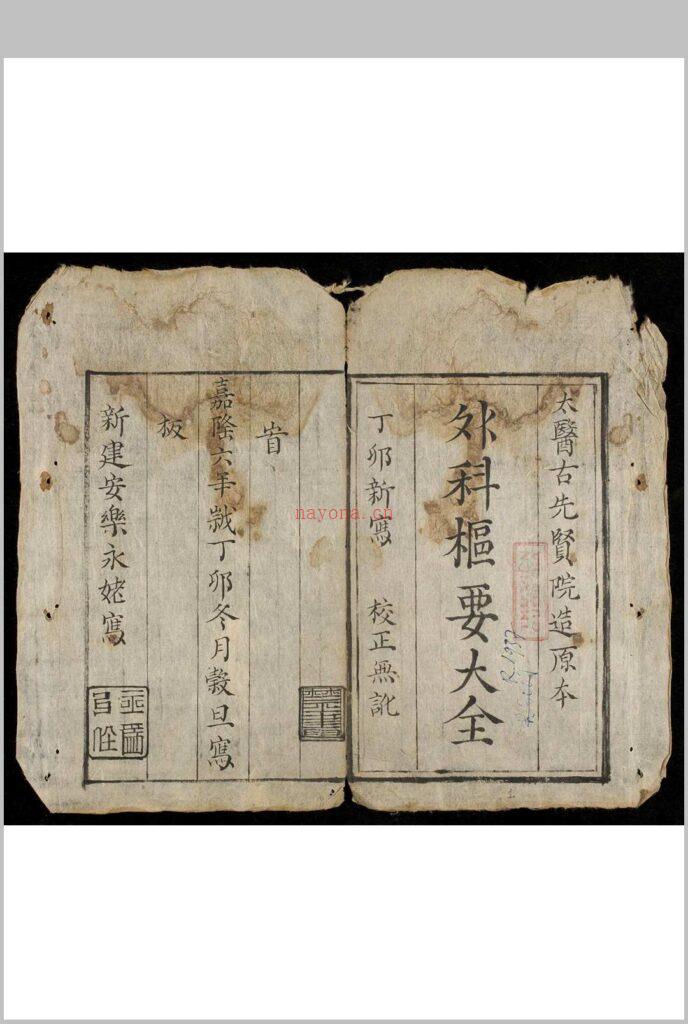 太醫古先賢院造原本
外科樞要大全
丁卯新寫 校正無訛
嘉隆六年歲丁卯冬月穀旦寫
板
新建安樂永姥寫
nayona.cn